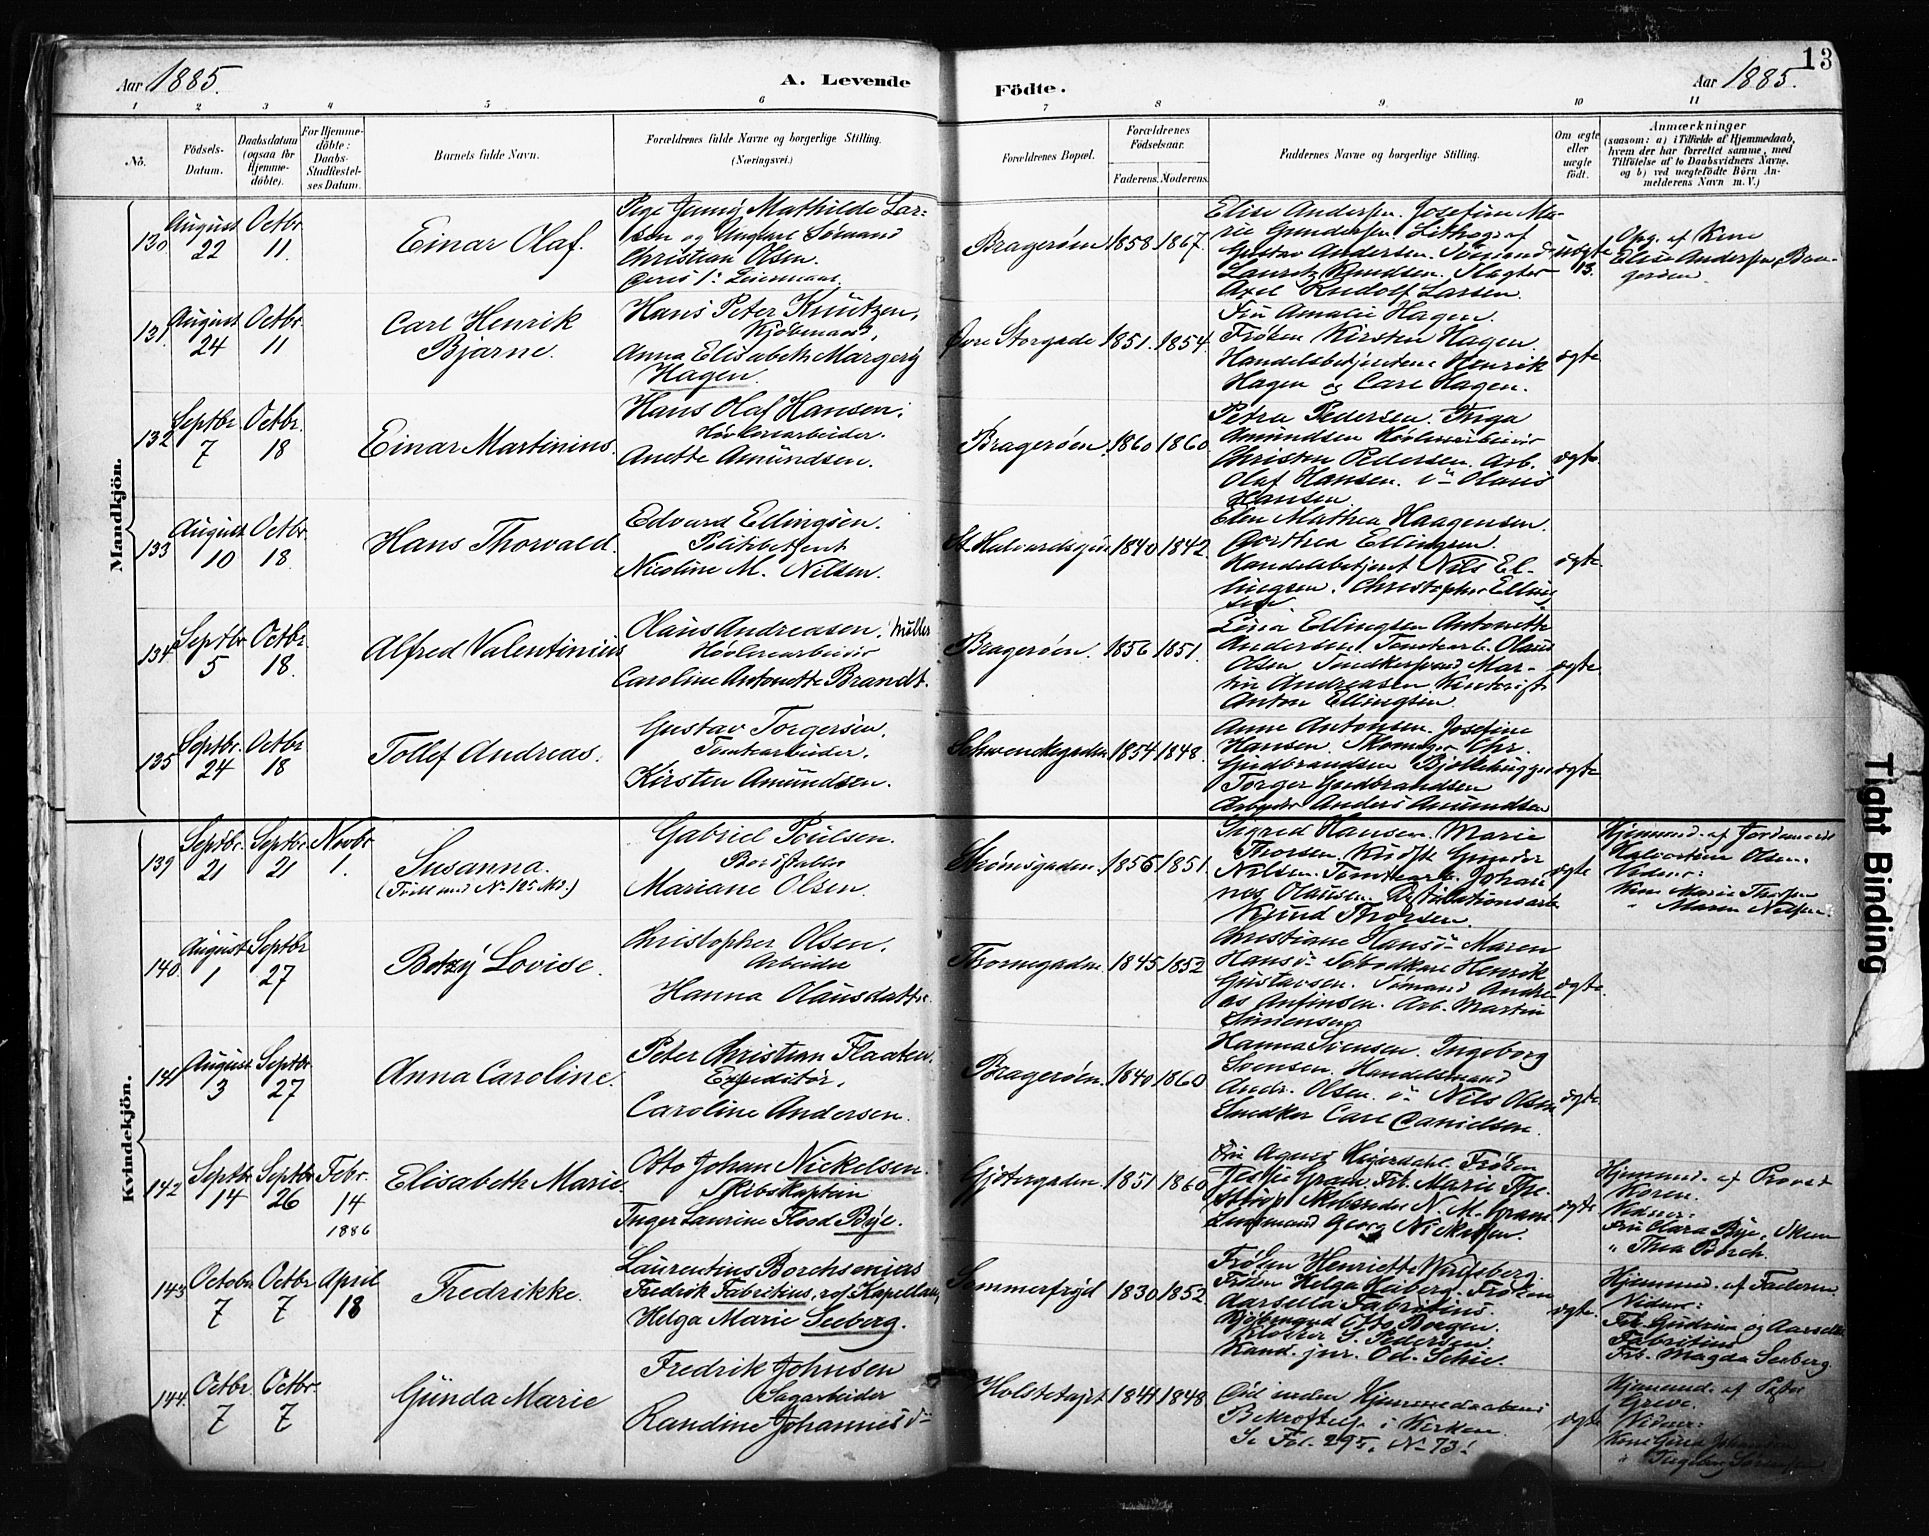 13
Aar 1885. A. Levende Födte. Aar 1885.
1 2 3 4 5 6 7 8 9 10 11
No.
Födsels-Datum.
Daabsdatum (ogsaa for Hjemme-döbte).
For Hjemme-döbte: Daabs-Stadfestel-ses Datum.
Barnets fulde Navn.
Forældrenes fulde Navne og borgerlige Stilling. (Næringsvei.)
Forældrenes Bopæl.
Forældrenes Födselsaar.
Faderens. Moderens.
Faddernes Navne og borgerlige Stilling.
Om ægte eller uægte födt.
Anmærkninger
(saasom: a) i Tilfælde af Hjemmedaab,
hvem der har forrettet samme, med
Tilföielse af to Daabsvidners Navne,
og b) ved uægtefödte Börn An-
melderens Navn m. V.)
Mandkjön.
130 August 22 Octbr. 11.
Einar Olaf.
Pige Jenny Mathilde Lar-
sen og Ungkarl Sömand
Christian Olsen.
Bragerøen 1858 1867.
Elise Andersen. Josefine Ma-
rie Gundersen. Lithograf
Gustav Andersen. Sömand
Lauritz Knudsen. Slagter
Axel Rudolf Larsen.
uægte
Opg. af Kone
Elise Andersen, Bra-
gerøen
131 August 24 Octbr 11
Carl Henrik
Bjarne.
Hans Peter Knutzen,
Kjöbmand,
Anna Elisabeth Margery
Hagen.
Øvre Storgade 1851. 1854.
Fru Amalie Hagen.
Frøken Kirsten Hagen.
Handelsbetjentene Henrik
Hagen og Carl Hagen.
ægte
132 Septbr 7 Octbr. 18
Einar Martinius.
Hans Olaf Hansen,
Høvleriarbeider.
Anette Amundsen.
Bragerøen. 1860 1860.
Petra Pedersen. Inga
Amundsen Høvleriarbeider
Christen Pedersen. Arb.
Olaf Hansen. Olaus
Hansen
ægte
133 August 10 Octbr. 18.
Hans Thorvald.
Edvard Ellingsen.
Politibetjent
Nicoline M. Nilsen.
St. Halvardsgade 1840 1842
Elen Mathea Haagensen.
Dorthea Ellingsen.
Handelsbetjent Nils El-
lingsen. Christopher Elling
sen.
ægte
134 Septbr 5 Octbr 18.
Alfred Valentinius
Olaus Andreasen. Müller
Høvleriarbeider
Caroline Antonette Brandt.
Bragerøen. 1856 1851.
Lina Ellingsen Antonette
Andersen. Tomtearb. Olaus
Olsen. Snedkersvend Mar-
tin Andreasen.
Anton Ellingsen.
ægte
135 Septbr. 24 Octbr 18
Tollef Andreas.
Gustav Torgersen,
Tomtearbeider,
Kirsten Amundsen.
Schwenckegaden 1854 1848.
Anne Antonsen. Josefine
Hansen. Skomager Chr.
Gudbrandsen Bjelkehugger
Torger Gudbrandsen
Arbeider Anders Amundsen
ægte
Kvindekjön.
139 Septbr. 21 Septbr. 21 Novbr 1.
Susanna.
(Født med No. 125 Md.)
Gabriel Poulsen.
Bordstabler
Mariane Olsen.
Strömsgaden. 1856 1851.
Sigred Hansen. Marie
Thorsen. Kudsk Gunder
Nilsen. Tomtearb. Johan-
nes Olausen. Destilationsarb
Knud Thorsen.
ægte
Hjemmed. af Jordemoder
Halvordine Olsen.
Vidner:
Kone Marie Thorsen
" Maren Nilsen.
140. August 1 Septbr 27
Betzy Lovise.
Christopher Olsen.
Arbeider
Hanna Olausdatter.
Thornegaden. 1845 1852
Christiane Hansd. Maren
Hansd. Henrik
Gustavsen. Sömand Andre-
as Anfinsen. Arb. Martin
Simensen
ægte.
141 August 3 Septbr. 27
Anna Caroline.
Peter Christian Flaaten.
Expeditör,
Caroline Andersen.
Bragerøen. 1840 1860
Hanna Svensen. Ingeborg
Svensen. Handelsmand
Andr. Olsen. Nils Olsen
Snedker Carl Danielsen.
ægte.
142 Septbr 14 Septbr 26 Febr. 14 1886
Elisabeth Marie.
Otto Johan Nickelsen.
Skibskaptein
Inger Laurine Flood Bye.
Gjetergaden. 1851 1860
Fru Agnes Heyerdahl. Frøken
Gram. Frk. Marie The-
strup. Skibsreder N. M. Gram
Lensmand Georg Nickelsen.
ægte.
Hjemmed. af Provst
Koren.
Vidner:
Fru Clara Bye, Skien
" Thea Borch.
143 Octobr 7 Octbr 7 April 18
Fredrikke.
Laurentius Borchsenius
Fredrik Fabritius, res. Kapellan
Helga Marie Seeberg.
Sommerfryd 1830 1852
Frøken Henriette Wulfsberg
Frøken Helga Heiberg. Frøken
Aarselia Fabritius.
Kjöbmand Otto Borgen.
Kloster S. Pedersen
Kand. jur. Od. Schie.
ægte.
Hjemmed. af Faderen
Vidner:
Frk. Gudrun og Aarselia
Fabritius
Frk. Magda Seeberg.
144. Octbr 7 Octbr. 7
Gunda Marie
Fredrik Johnsen
Sagarbeider
Randine Johannesd.
Holstetajet 1841 1848
Död inden Hjemmedaabens
Bekræftelse i Kirken.
Se Fol. 295. No 73.
ægte
Hjemmed. af Pastor
Greve.
Vidner: